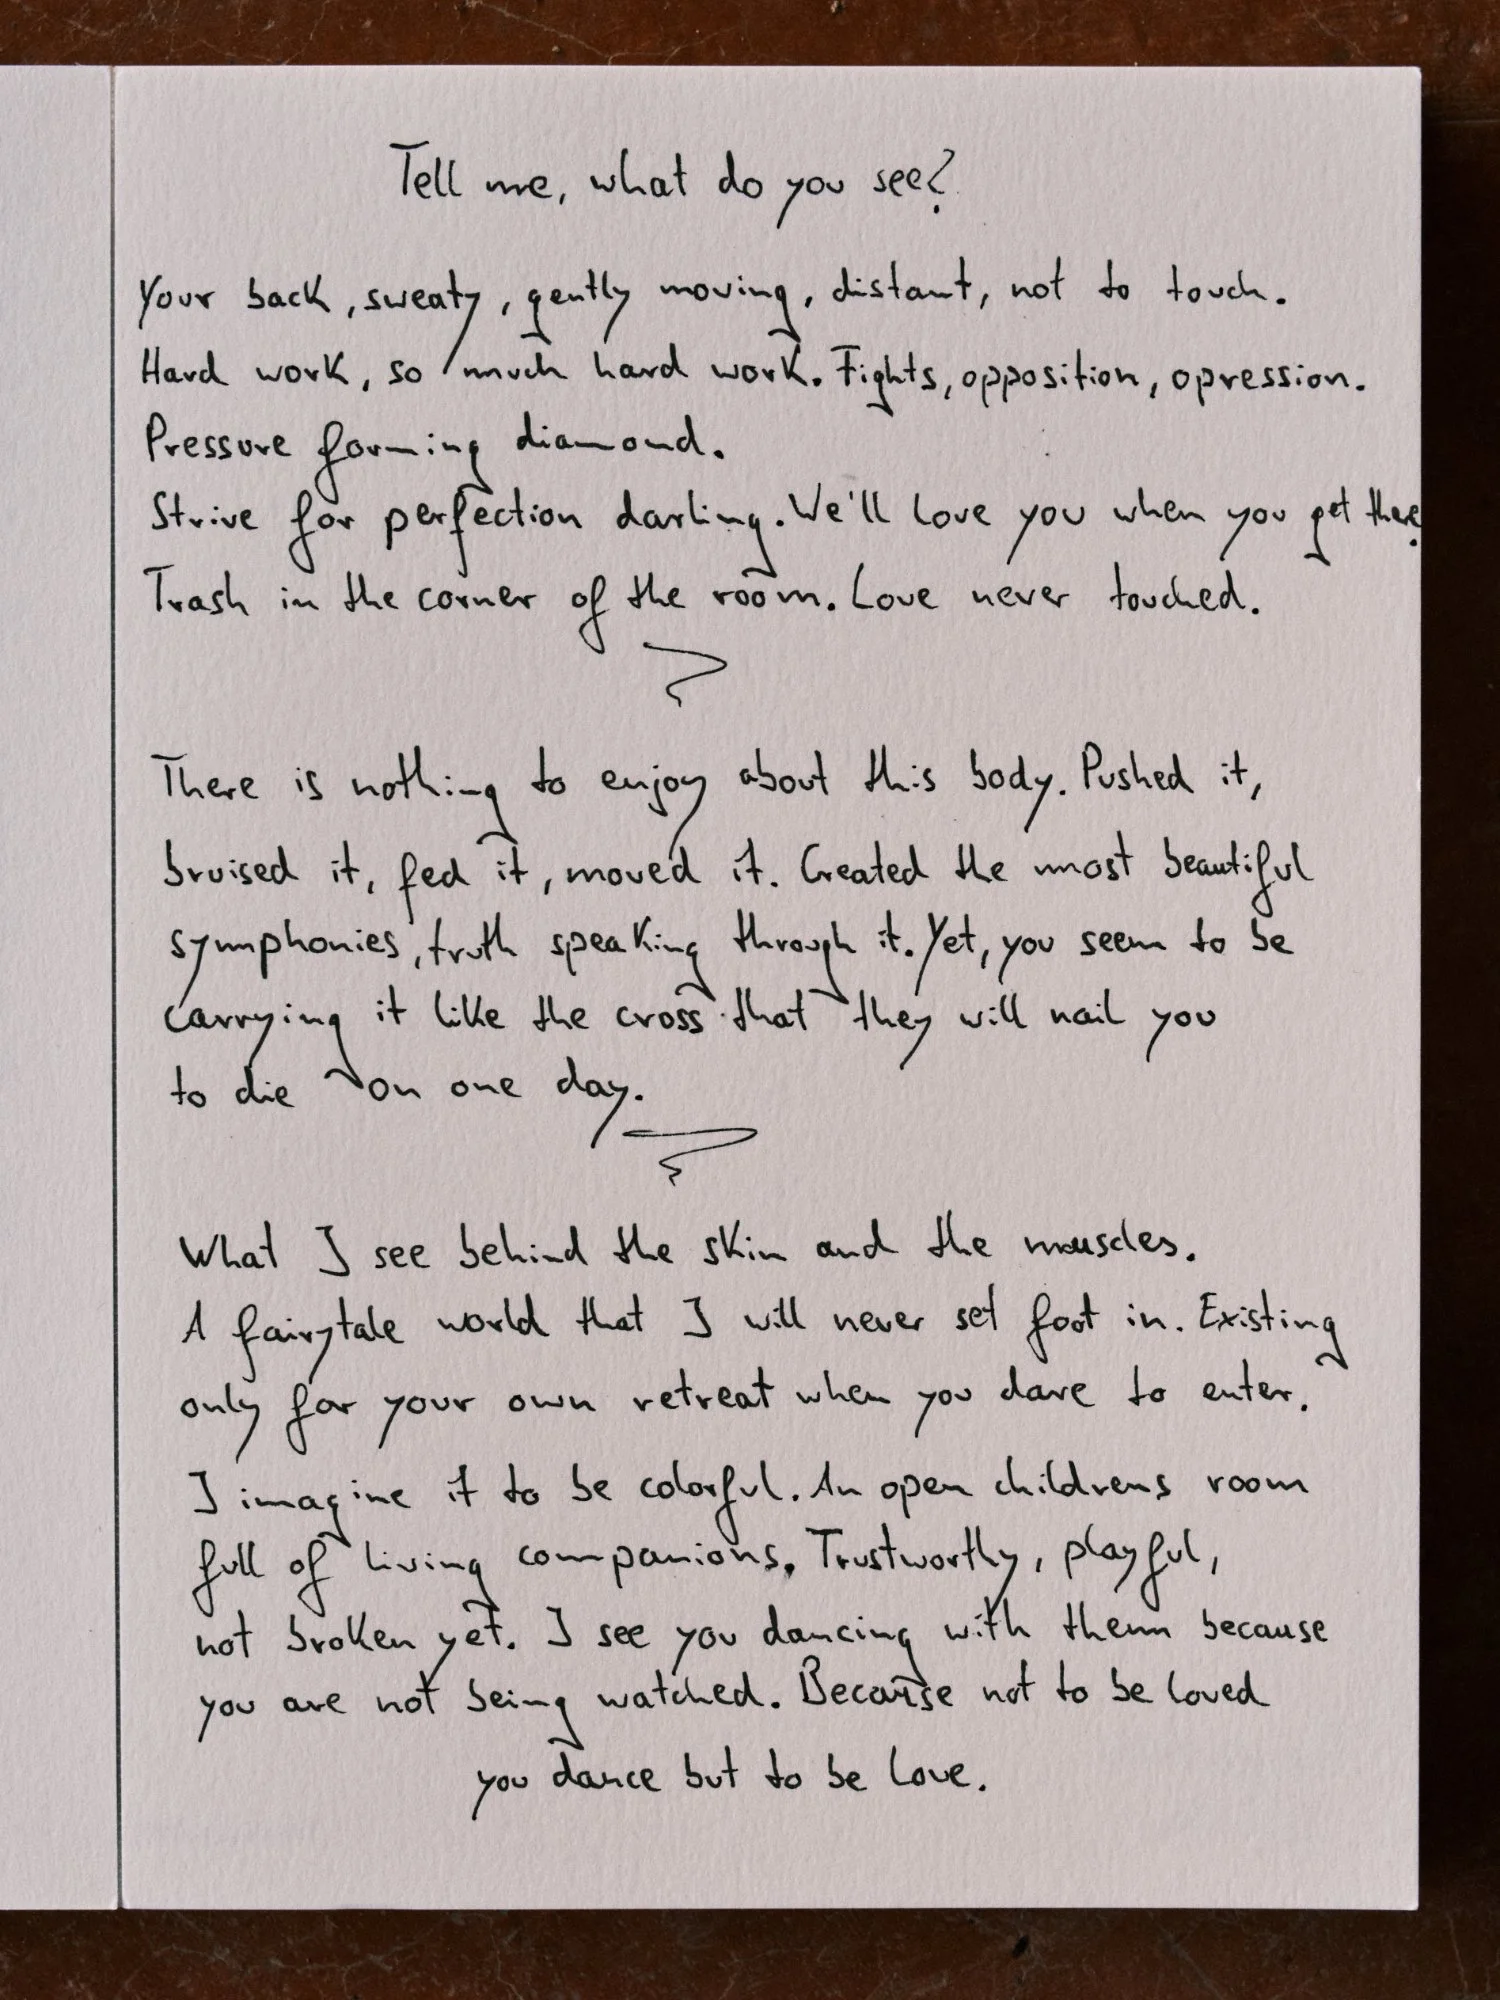 Tell me, what do you see?
Your back, sweaty, gently moving, distant, not to touch.
Hard work, so much hard work. Fights, opposition, opression.
Pressure forming diamond.
Strive for perfection darling. We'll love you when you get there.
Trash in the corner of the room. Love never touched.
There is nothing to enjoy about this body. Pushed it,
bruised it, fed it, moved it. Created the most beautiful
symphonies, truth speaking through it. Yet, you seem to be
carrying it like the cross that they will nail you
to die on one day.
What I see behind the skin and the muscles.
A fairytale world that I will never set foot in. Existing
only for your own retreat when you dare to enter.
I imagine it to be colorful. An open childrens room
full of living companions. Trustworthy, playful,
not broken yet. I see you dancing with them because
you are not being watched. Because not to be loved
you dance but to be love.